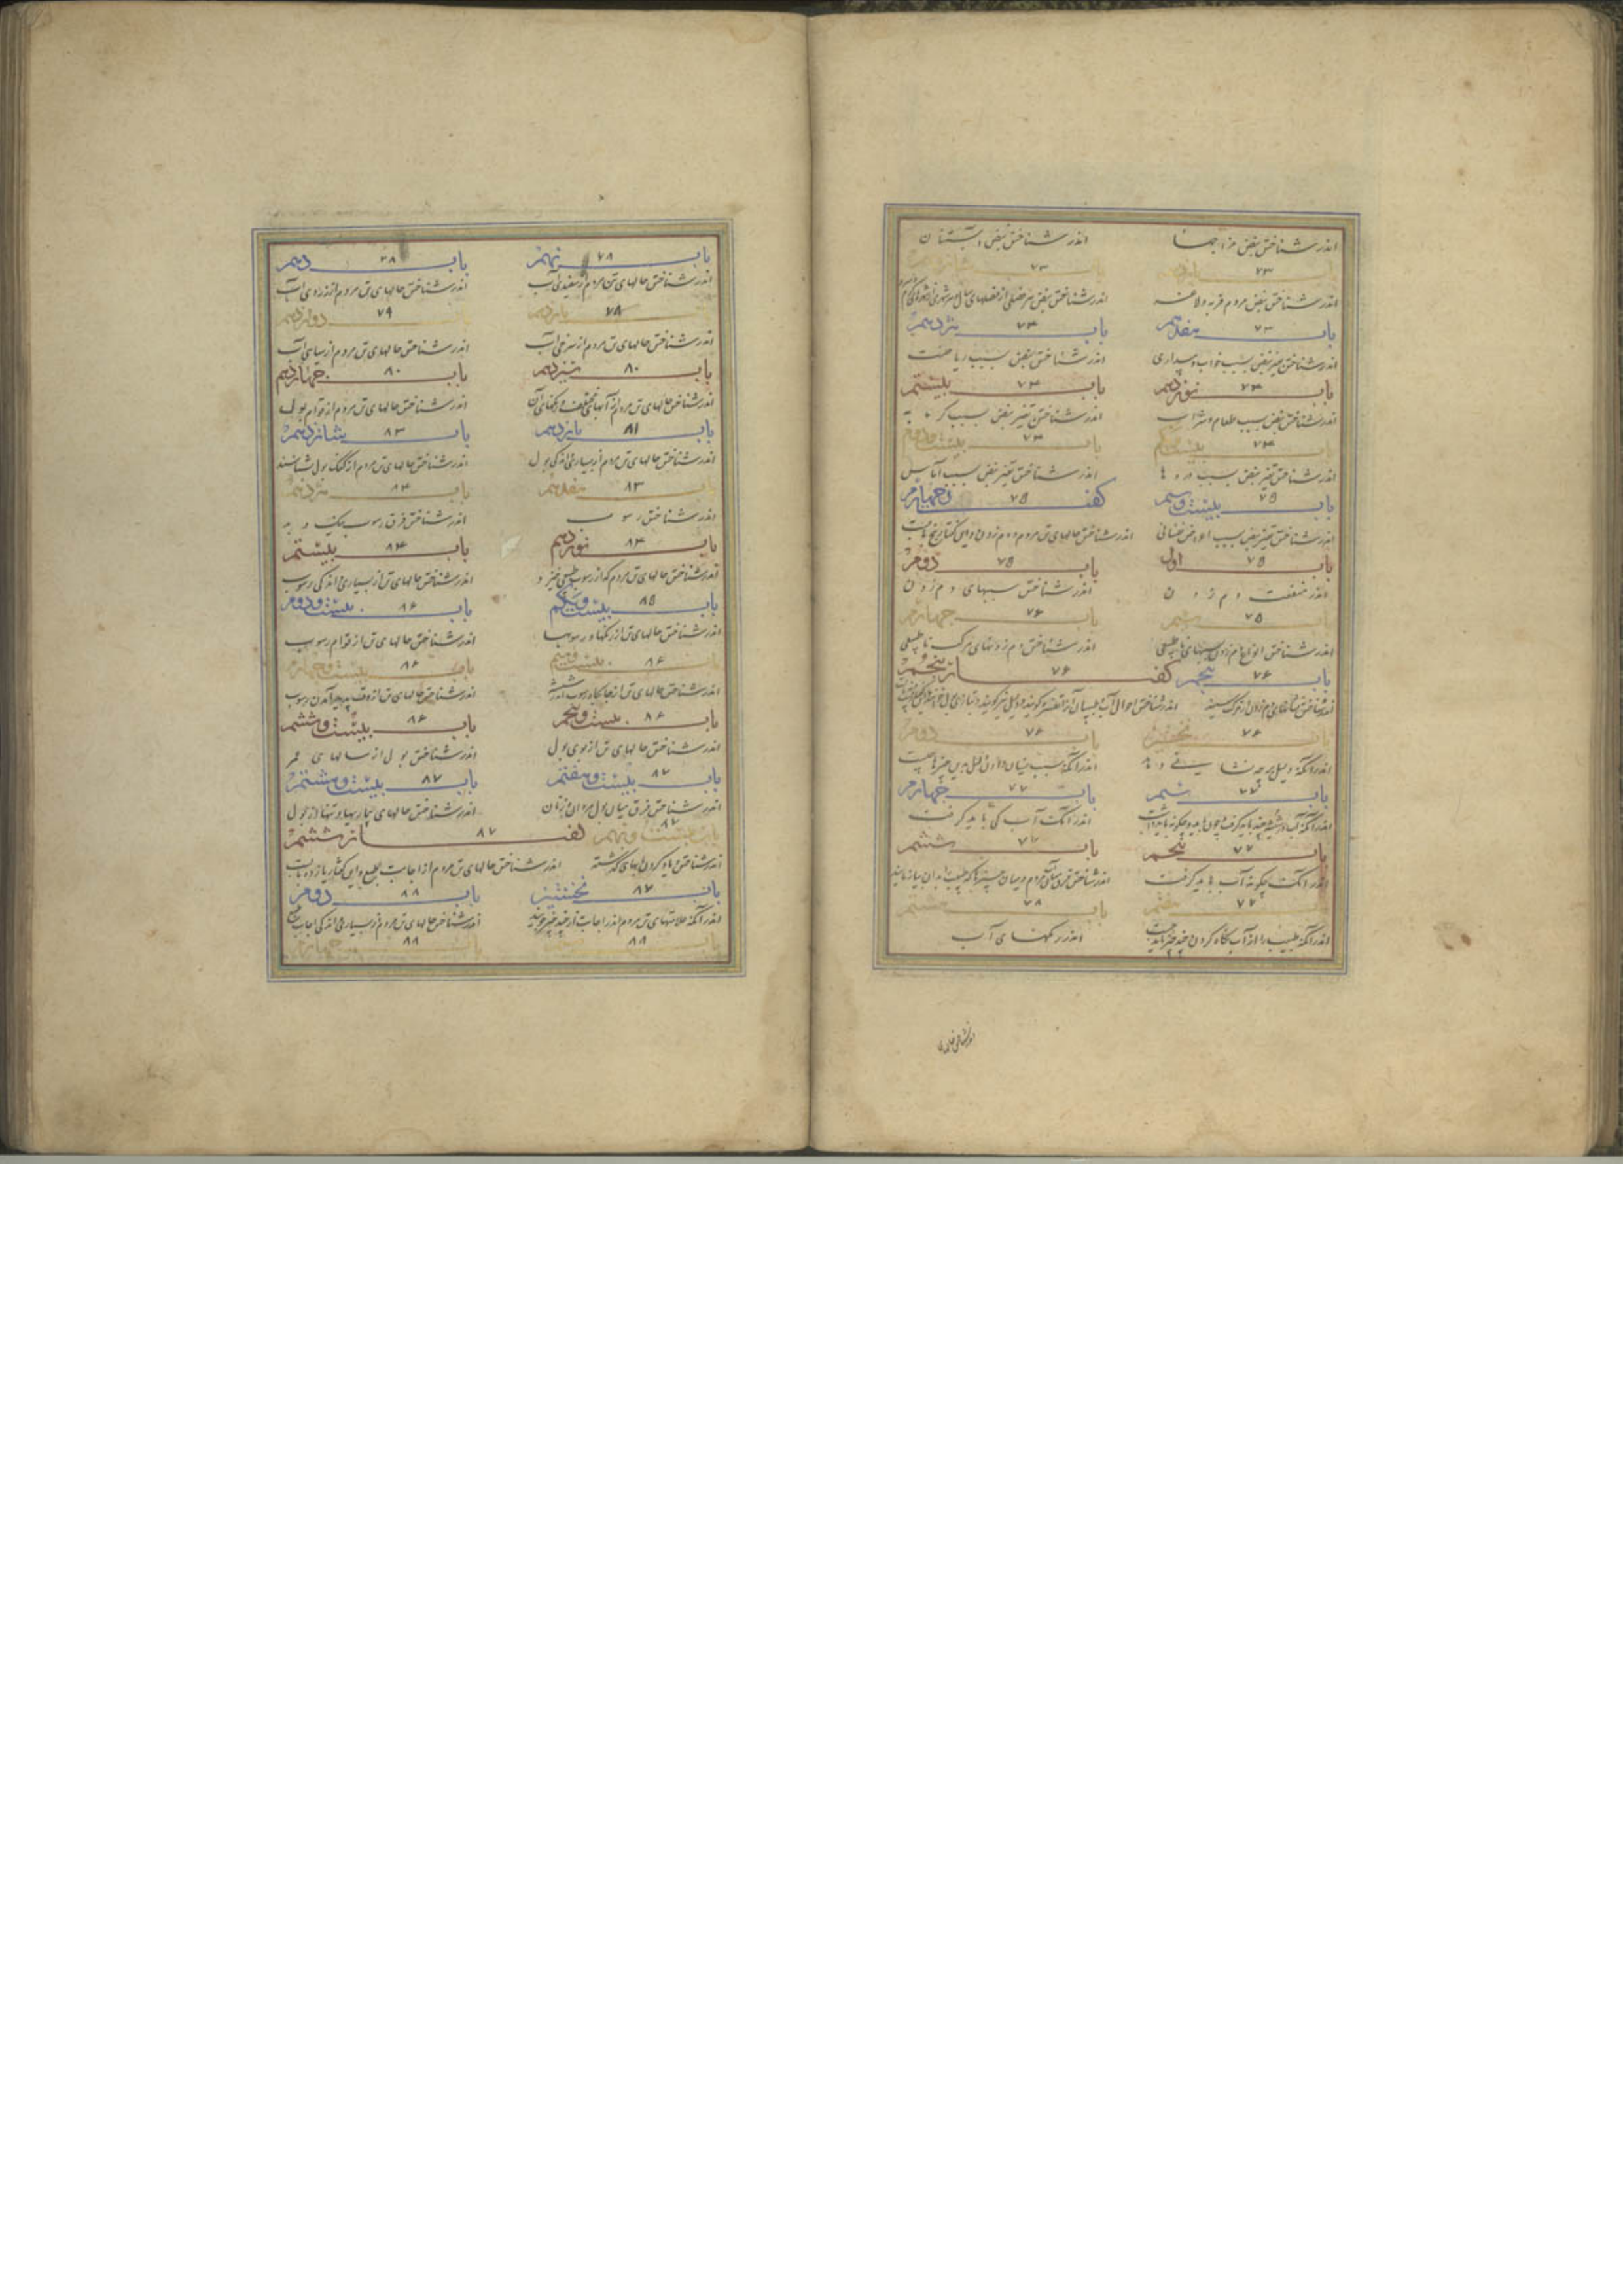 اندر شناختن نبض مزاجها اندر شناختن نبض آبستنان
باب ۷۳ پانزدهم باب ۷۳ شانزدهم
اندر شناختن نبض مردم فربه و لاغر اندر شناختن نبض هر فصلی از فصلهای سال و هر شهری
باب ۷۳ هفدهم باب ۷۴ هژدهم
اندر شناختن تغیر نبض بسبب خواب و بیداری اندر شناختن نبض بسبب ریاضت
باب ۷۴ نوزدهم باب ۷۴ بیستم
اندر شناختن نبض بسبب طعام و شراب اندر شناختن تغیر نبض بسبب گرمابه
باب ۷۴ بیست و یکم باب ۷۴ بیست و دوم
اندر شناختن تغیر نبض بسبب دردها اندر شناختن تغیر نبض بسبب آماس
باب ۷۵ بیست و سیم گفتار ۷۵ چهارم
اندر شناختن تغیر نبض بسبب اعراض نفسانی اندر شناختن حالهای تن مردم از دم زدن و این گفتار پنج بابست
باب ۷۵ اول باب ۷۵ دوم
اندر منفعت دم زدن اندر شناختن سببهای دم زدن
باب ۷۵ سیم باب ۷۶ چهارم
اندر شناختن انواع دم زدن و سببهای ناطبیعی اندر شناختن دم زدنهای مرکب ناطبیعی
باب ۷۶ پنجم گفتار ۷۶ پنجم
اندر شناختن نشانهای دم زدن از حرکت سینه اندر شناختن احوال آب که طبیبان آنرا تفسره گویند و دلیل نیز گویند و بتازی بول گویند
باب ۷۶ نخستین باب ۷۶ دوم
اندر آنکه دلیل بر چه نشان دهد اندر آنکه سبب نشان دادن دلیل بدین چیزها چیست
باب ۷۷ سیم باب ۷۷ چهارم
اندر آنکه آب در شیشه چند باید گرفت و چون باید و چگونه باید داشت اندر آنکه آب کی باید گرفت
باب ۷۷ پنجم باب ۷۷ ششم
اندر آنکه چگونه آب باید گرفت اندر شناختن فرق میان آب مردم و میان چیزها که طبیب را بدان بیازمایند
باب ۷۷ هفتم باب ۷۸ هشتم
اندر آنکه طبیب را از آب نگاه کردن چند چیز باید جست اندر رنگهای آب
باب ۷۸ نهم باب ۳۸ دهم
اندر شناختن حالهای تن مردم از سفیدی آب اندر شناختن حالهای تن مردم از زردی آب
باب ۷۸ یازدهم باب ۷۹ دوازدهم
اندر شناختن حالهای تن مردم از سرخی آب اندر شناختن حالهای تن مردم از سیاهی آب
باب ۸۰ سیزدهم باب ۸۰ چهاردهم
اندر شناختن حالهای تن مردم از آبهای مختلف و رنگهای آن اندر شناختن حالهای تن مردم از قوام بول
باب ۸۱ پانزدهم باب ۸۳ شانزدهم
اندر شناختن حالهای تن مردم از بسیاری و اندکی بول اندر شناختن حالهای تن مردم از کفک بول شناسند
باب ۸۳ هفدهم باب ۸۴ هژدهم
اندر شناختن رسوب اندر شناختن فرق رسوب نیک و بد
باب ۸۴ نوزدهم باب ۸۴ بیستم
اندر شناختن حالهای تن مردم که از رسوب طبیعی خیزد اندر شناختن حالهای تن از بسیاری و اندکی رسوب
باب ۸۵ بیست و یکم باب ۸۶ بیست و دوم
اندر شناختن حالهای تن از رنگهای رسوب اندر شناختن حالهای تن از قوام رسوب
باب ۸۶ بیست و سیم باب ۸۶ بیست و چهارم
اندر شناختن حالهای تن از جایگاه رسوب اندر شیشه اندر شناختن حالهای تن از وقت پدید آمدن رسوب
باب ۸۶ بیست و پنجم باب ۸۶ بیست و ششم
اندر شناختن حالهای تن از بوی بول اندر شناختن بول از سالهای عمر
باب ۸۷ بیست و هفتم باب ۸۷ بیست و هشتم
اندر شناختن فرق میان بول مردان و زنان اندر شناختن حالهای بیماریها و تنها از بول
باب ۸۷ بیست و نهم گفتار ۸۷ ششم
اندر شناختن و یاد کردن بابهای گذشته اندر شناختن حالهای تن مردم از اجابت طبع و این گفتار یازده بابست
باب ۸۷ نخستین باب ۸۸ دوم
اندر آنکه علامتهای تن مردم اندر اجابت از چند چیز جویند اندر شناختن حالهای تن مردم از بسیاری و اندکی اجابت طبع
باب ۸۸ باب ۸۸ چهارم